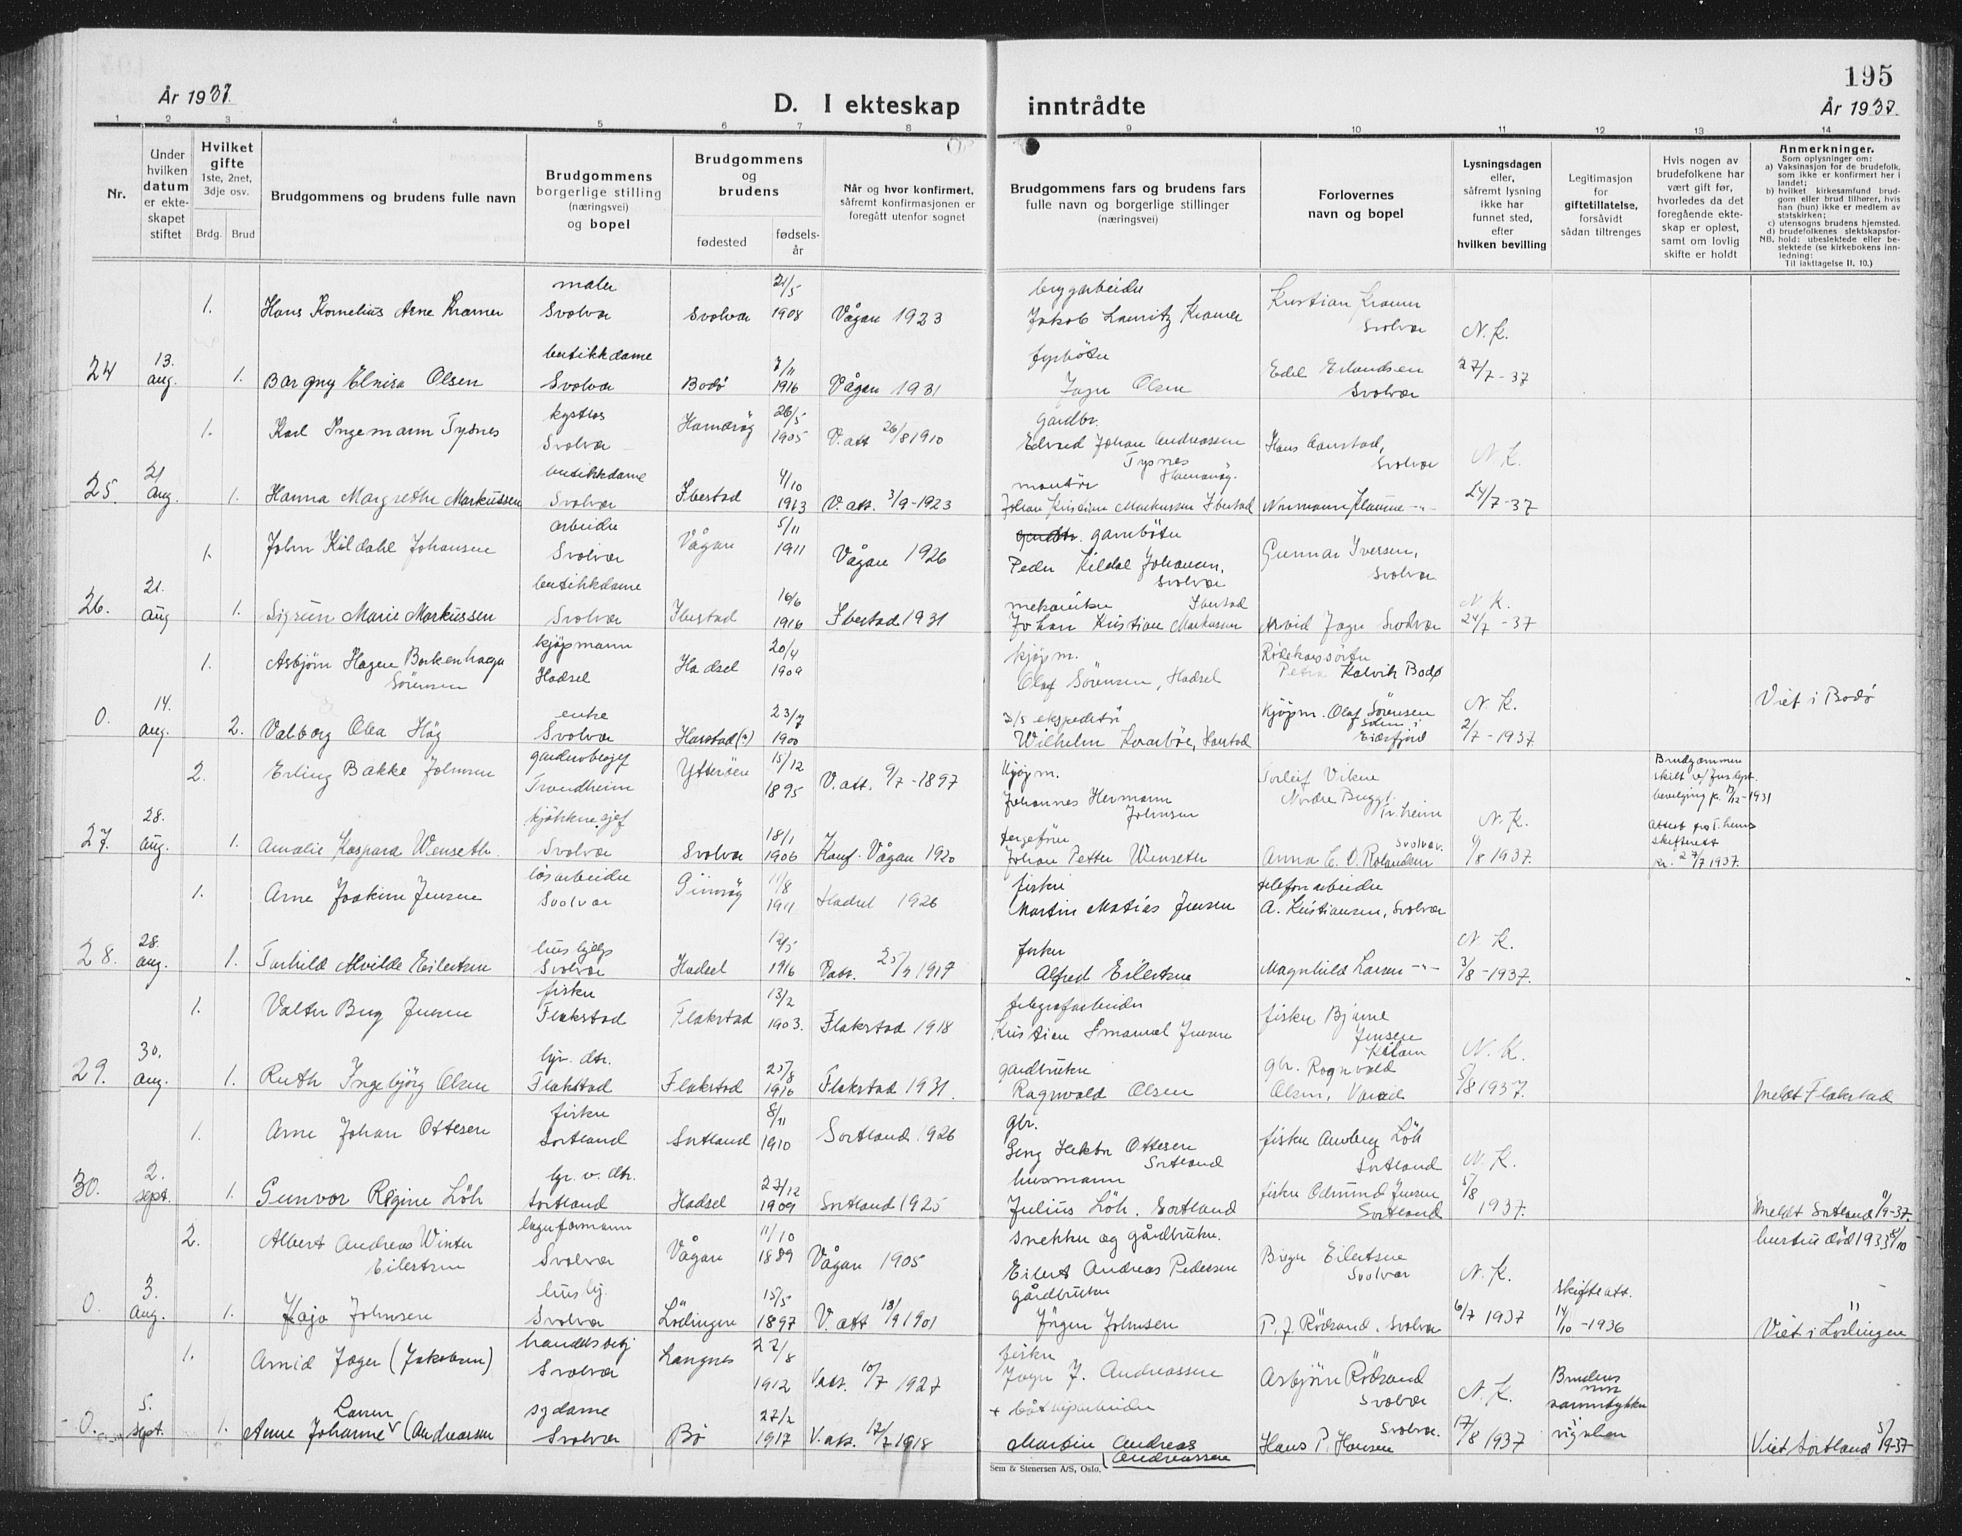 År 1937.
D. I ekteskap inntrådte
195
År 1937.
1 2 3 4 5 6 7 8 9 10 11 12 13 14
Nr.
Under hvilken datum er ekteskapet stiftet
Hvilket gifte 1ste, 2net, 3dje osv.
Brdg. Brud
Brudgommens og brudens fulle navn
Brudgommens borgerlige stilling (næringsvei) og bopel
Brudgommens og brudens
fødested
fødselsår
Når og hvor konfirmert, såfremt konfirmasjonen er foregått utenfor sognet
Brudgommens fars og brudens fars fulle navn og borgerlige stillinger (næringsvei)
Forlovernes navn og bopel
Lysningsdagen eller, såfremt lysning ikke har funnet sted, efter hvilken bevilling
Legitimasjon for giftetillatelse, forsåvidt sådan tiltrenges
Hvis nogen av brudefolkene har vært gift før, hvorledes da det foregående ekteskap er opløst, samt om lovlig skifte er holdt
Anmerkninger.
Som oplysninger om:
a) Vaksinasjon for de brudefolk, som ikke er konfirmert her i landet;
b) hvilket kirkesamfund brudgom eller brud tilhører, hvis han (hun) ikke er medlem av statskirken;
c) utensogns brudens hjemsted.
d) brudefolkenes slektskapsforhold: ubeslektede eller beslektede (se kirkebokens innledning:
NB. Til iakttagelse II. 10.)
1. Hans Kornelius Arne Kramer maler Svolvær Svolvær 21/5 1908 Vågan 1923 brygarbeider Jakob Lauritz Kramer Kristian Kramer Svolvær N.K.
24 13. aug. 1. Borgny Elvira Olsen butikkdame Svolvær Bodø 7/11 1916 Vågan 1931 fyrbøter Jagn Olsen Edel Erlandsen Svolvær 27/7-37
1. Karl Ingemann Tysnes Svolvær Hamarøy 26/5 1905 V.att 26/8 1910 gardbr. Edvard Johan Andreassen Tysnes Hamarøy. Hans Svolvær N.K.
25. 21 aug. 1. Hanna Margrethe Markussen butikkdame Svolvær Ibestad 4/10 1913 V.att. 3/9-1923 montør Johan Kristian Markussen Ibestad Normann -"- 24/7-37
1. John Kildahl Johansen arbeider Svolvær Vågan 5/11 1911 Vågan 1926 garnbøter Peder Kildal Johansen, Svolvær Gunnar Iversen, Svolvær
26. 21. aug 1. Sigrun Marie Markussen butikkdame Svolvær Ibestad 16/6 1916 Ibestad 1931 mekaniker Ibestad Johan Kristian Markussen Arvid Jagn Svolvær N.K. 24/7-37
1. Asbjørn Hagen Borkenhagen Sörensen kjøpmann Hadsel Hadsel 20/4 1909 kjøpm. Olaf Sörensen, Hadsel Rødekorssøster Petra Kalvik Bodø
0. 14. aug. 2. Valborg Olea Høg enke Svolvær Harstad(?) 23/7 1900 D/S ekspeditør Wilhelm Harstad Kjøpm. Olaf Sörensen Eidsfjord N.K. 2/7-1937 Viet i Bodø
2. Erling Bakke Johnsen Trondheim Ytterøen 15/12 1895 V.att. 9/7-1897 Kjøpm. Johannes Hermann Johnsen Torleif Vikne Nordre Tr.heim Brudgommen skilt bevilging
27. 28. aug. 1. Amalie Kaspara Wenseth. Svolvær Svolvær 18/1 1906 Konf. Vågan 1920 Johan Petter Wenseth Anna C. O. Rolandsen Svolvær. N.K. 1/8 1937. Attest fra T.heims skifterett 27/7 1937.
1. Arne Joakim Jensen løsarbeider Svolvær Gimsøy 11/8 1911 Hadsel 1926 fisker Martin Matias Jensen telefonarbeider A. Kristiansen, Svolvær
28. 28. aug. 1. Torhild Alvilde Eilertsen hushjelp Svolvær Hadsel 12/5 1916 V.att. 1917 fisker Alfred Eilertsen Magnhild Larsen -"- N.K. 3/8-1937.
1. Valter Berg Jensen fisker Flakstad Flakstad 13/2 1903. Flakstad 1918 telegrafarbeider Kristian Emanuel Jensen fisker Bjarne Jensen
29. 30. aug. 1. Ruth Ingebjørg Olsen hjv. dtr. Flakstad Flakstad 25/8 1910 Flakstad 1931. gardbruker Ragnvald Olsen gbr. Ragnvald Olsen, N.K. 5/8 1937. Meldt Flakstad
1. Arne Johan Ottesen fisker Sortland Sortland 8/11 1910 Sortland 1926 gbr. Georg Hektor Ottesen Sortland fisker Løh Sortland N.K.
30. 2. sept. 1. Gunvor Regine Löh hjv. v. dtr. Sortland Hadsel 27/12 1909 Sortland 1925 husmann Julius Löh. Sortland fisker Odmund Jensen Sortland 5/8 1937. Meldt Sortland 9/9-37.
2. Albert Andreas Winter Eilertsen lagerformann Svolvær Vågan 11/10 1889 Vågan 1905 snekker og gårdbruker. Eilert Andreas Pedersen Birger Eilertsen Svolvær N.K. hustru død 1935
0. 3. aug. 1. Kaja Johnsen hushj. Svolvær Lödingen 15/5 1897 V.att 18/9 1901 gårdbruker Jörgen Johnsen P. J. Rödsand. Svolvær 6/7 1937 Skifteatt. 14/10-1936 Viet i Lödingen
1. Arnid Jæger (Jakobsen) handelsbetj Svolvær Langnes 27/8 1912 V.att. 10/7 1927 fisker J. Andreassen Asbjörn Rödsand Svolvær N.K. Brudens mors samtykke
0. 5. sept. 1. Anne Johanne Larsen (Andreassen sydame Svolvær Bø 27/2 1917 V.att. 12/7 1918 + båtreparbeider Martin Andreas (Andreassen Hans P. Hansen Svolvær. 17/8 1937 Viet Sortland 5/9-37
Sem & Stenersen A/S, Oslo.